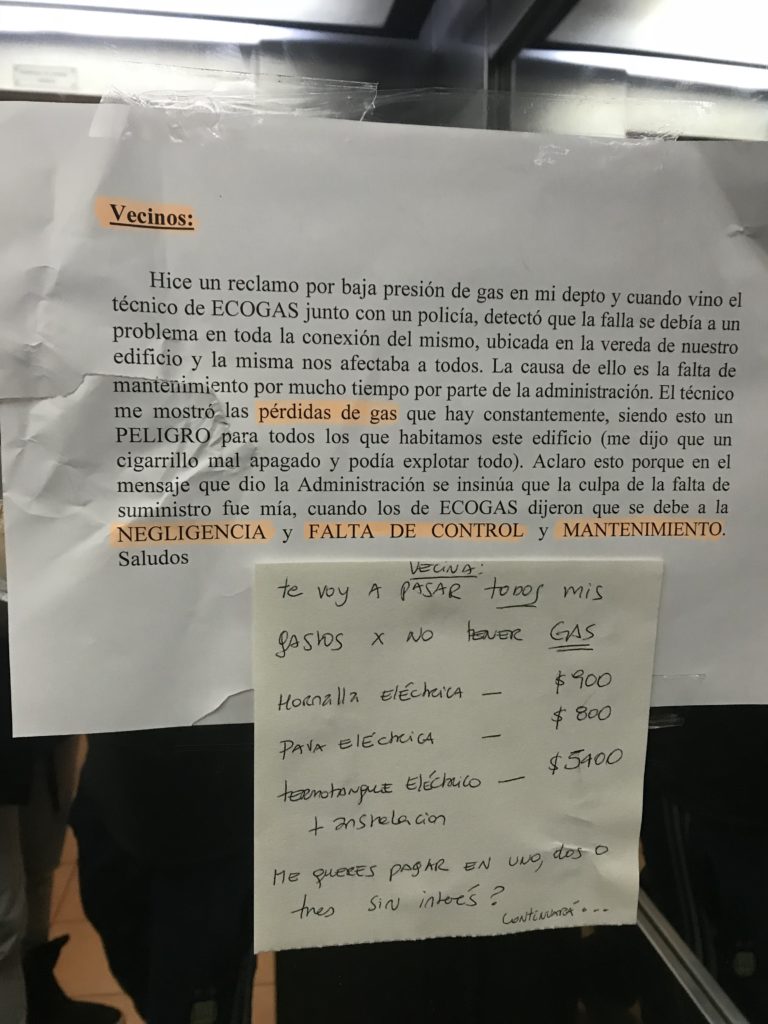 Vecinos:
Hice un reclamo por baja presión de gas en mi depto y cuando vino el
técnico de ECOGAS junto con un policía, detectó que la falla se debía a un
problema en toda la conexión del mismo, ubicada en la vereda de nuestro
edificio y la misma nos afectaba a todos. La causa de ello es la falta de
mantenimiento por mucho tiempo por parte de la administración. El técnico
me mostró las pérdidas de gas que hay constantemente, siendo esto un
PELIGRO para todos los que habitamos este edificio (me dijo que un
cigarrillo mal apagado y podía explotar todo). Aclaro esto porque en el
mensaje que dio la Administración se insinúa que la culpa de la falta de
suministro fue mía, cuando los de ECOGAS dijeron que se debe a la
NEGLIGENCIA y FALTA DE CONTROL y MANTENIMIENTO.
Saludos
VECINA:
te voy A PASAR todos mis
gastos x NO tener GAS
Hornalla Eléctrica — $900
PAVA Eléctrica — $800
termotanque Eléctrico — $5400
+ instalacion
ME QUERES PAGAR EN UNO, dos o
tres SIN interés?
CONTINUARÁ....